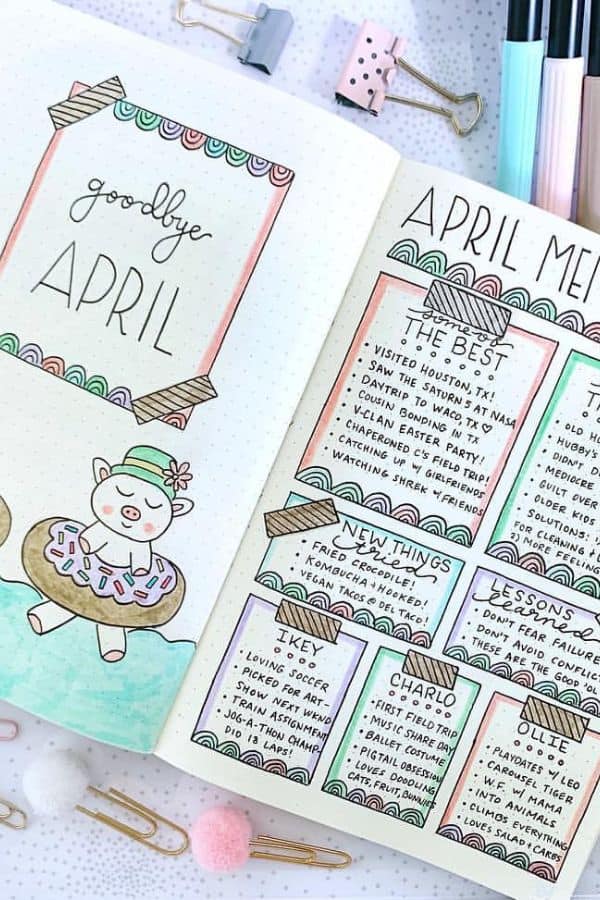 goodbye
APRIL
APRIL
some of
THE BEST
• VISITED HOUSTON, TX!
• SAW THE SATURN 5 AT NASA
• DAYTRIP TO WACO TX ♡
• COUSIN BONDING IN TX
• V-CLAN EASTER PARTY!
• CHAPERONED C'S FIELD TRIP!
• CATCHING UP w/ GIRLFRIENDS
• WATCHING SHREK w/ FRIENDS
• OLD
• HUBBY'S
• DIDN'T
• MEDIOCRE
• GUILT OVER
• OLDER KIDS
• SOLUTIONS:
FOR CLEANING
2) MORE FEELING
NEW THINGS
tried
• FRIED CROCODILE!
• KOMBUCHA → HOOKED!
• VEGAN TACOS @ DEL TACO!
LESSONS
learned
• DON'T FEAR FAILURE
• DON'T AVOID CONFLICT
• THESE ARE THE GOOD 'OL
IKEY
• LOVING SOCCER
• PICKED FOR ART
SHOW NEXT WKND
• TRAIN ASSIGNMENT
• JOG-A-THON CHAMP-
DID 18 LAPS!
CHARLO
• FIRST FIELD TRIP
• MUSIC SHARE DAY
• BALLET COSTUME
• PIGTAIL OBSESSION
• LOVES DOODLING
CATS, FRUIT, BUNNIES
OLLIE
• PLAYDATES w/ LEO
• CAROUSEL TIGER
W.F. w/ MAMA
• INTO ANIMALS
• CLIMBS EVERYTHING
• LOVES SALAD + CARBS